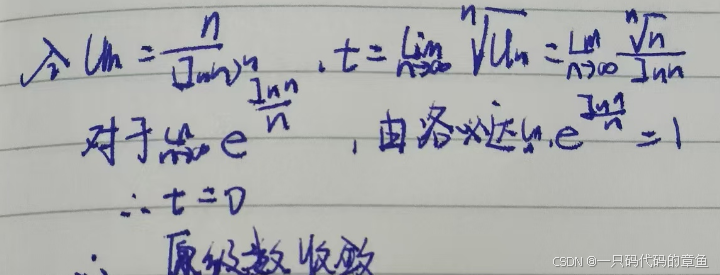 令 Un = n/(lnn)^n , t = lim n→∞ ⁿ√Un = lim n→∞ ⁿ√n/lnn
对于 lim n→∞ e^(lnn/n) , 由洛必达 lim e^(lnn/n) = 1
∴ t = 0
∴ 原级数收敛
CSDN @一只码代码的章鱼